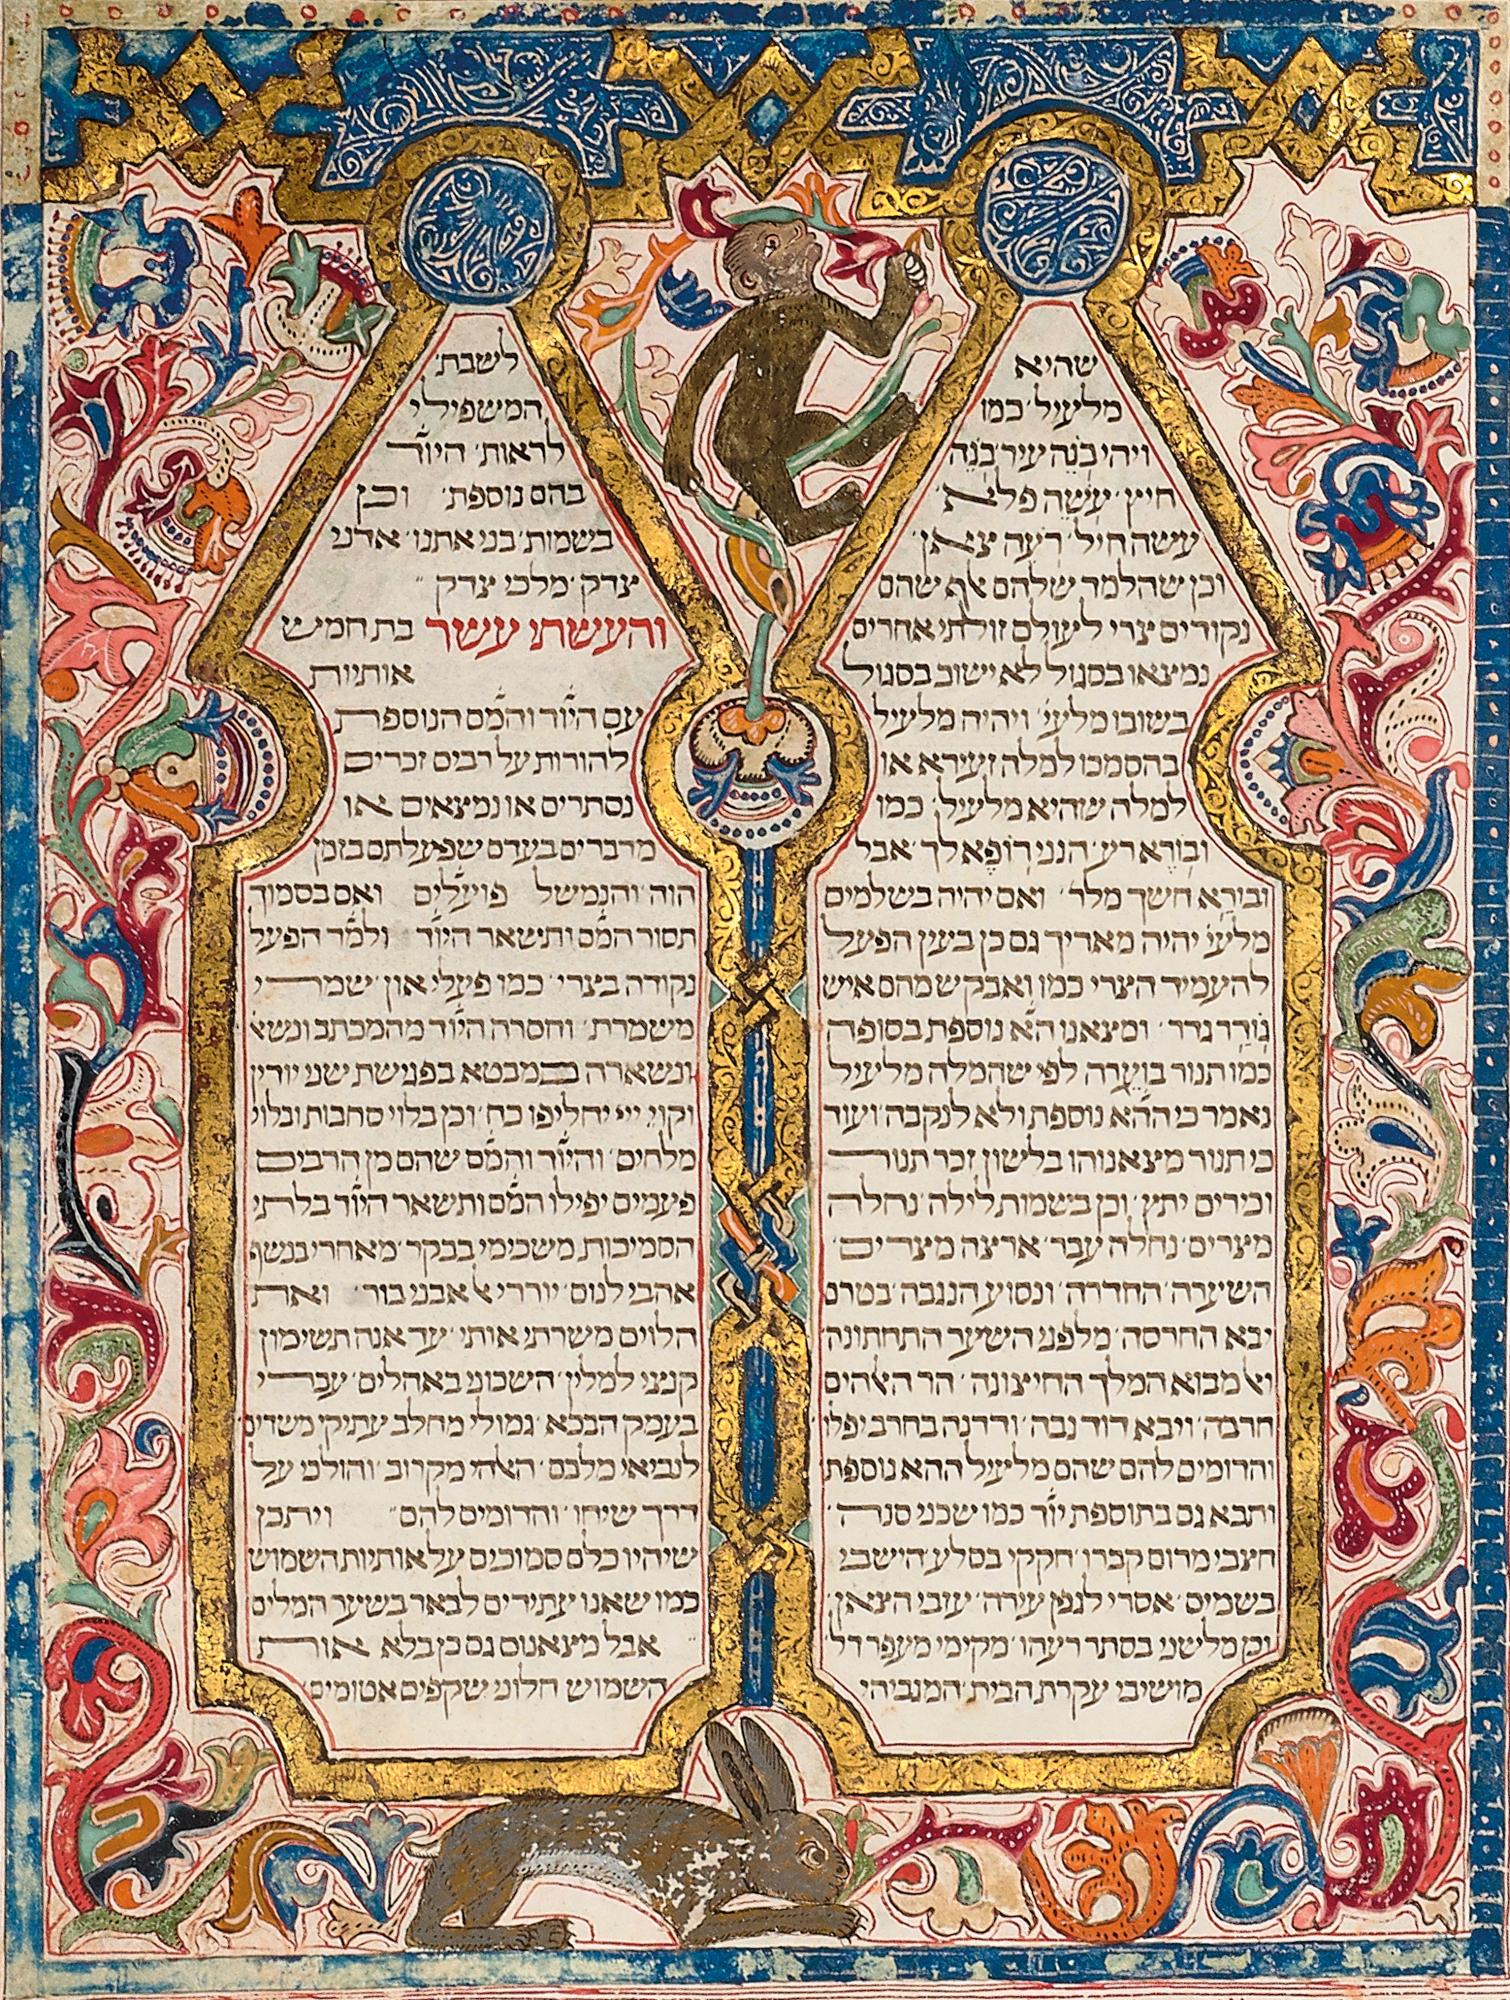 שהיא
מלעיל כמו
ויהי בנה עיר בנה
חיץ עשה פלא
עשה חיל רעה צאן
וכן שהלמד שלהם אף שהם
נקודים צרי לעולם זולתי אחרים
נמצאו בסגול לא ישוב בסגול
בשובו מלעי ויהיה מלעיל
בהסמכו למלה זעירא או
למלה שהיא מלעיל כמו
ובורא רע הנני רופא לך אבל
ובורא חשך מלר ואם יהיה בשלמים
מלעי יהיה מאריך גם כן בעין הפעל
להעמיד הצרי כמו ואבקש מהם איש
גודר גדר ומצאנו הא נוספת בסופה
כמו תנור בוערה לפי שהמלה מלעיל
נאמר כי ההא נוספת ולא לנקבה ועוד
כי תנור מצאנוהו בלשון זכר תנור
וכירים יתץ וכן בשמות לילה נחלה
מצרים נחלה עבר ארצה מצרים
השיערה החדרה ונסוע הנגבה בטרם
יבא החרסה מלפני השער התחתונה
ואל מבוא המלך החיצונה הר האלהים
חרבה ויבא דוד נבה ודדנה בחרב יפלו
והדומים להם שהם מלעיל ההא נוספת
ותבא גם בתוספת יוד כמו שכני סנה
חצבי מרום קברו חקקי בסלע הישבי
בשמים אסרי לגפן עירה עזבי הצאן
וכן מלשני בסתר רעהו מקימי מעפר דל
מושיבי עקרת הבית המגביהי
לשבת
המשפילי
לראות היוד
בהם נוספת וכן
בשמות בני אתנו אדני
צדק מלכי צדק
והעשתי עשר בת חמיש
אותיות
עם היוד והמם הנוספת
להורות על רבים זכרים
נסתרים או נמצאים או
מדברים בעדם שפעלתם בזמן
הוה והנמשל פועלים ואם בסמוך
תסור המם ותישאר היוד ולמד הפעל
נקודה בצרי כמו פעלי און שמרי
משמרת וחסרה היוד מהמכתב ונשא
ונשארה במבטא בפגישת שני יודין
וקוי ייי יחליפו כח וכן בלוי סחבות ובלוי
מלחים והיוד והמם שהם מן הרבים
פעמים יפילו המם ותשאר היוד בלתי
הסמיכות משכימי בבקר מאחרי בנשף
אהבי לנום יורדי אל אבני בור ואת
הלוים משרתי אותי עד אנה תשימון
קנצי למלין השכוני באהלים עברי
בעמק הבכא גמולי מחלב עתיקי משדים
לנביאי מלבם האלהי מקרוב והולכי על
דרך שיחו והדומים להם ויתכן
שיהיו כלם סמוכים על אותיות השמוש
כמו שאנו עתידים לבאר בשער המלים
אבל מצאנום גם כן בלא אות
השמוש חלוני שקפים אטומים